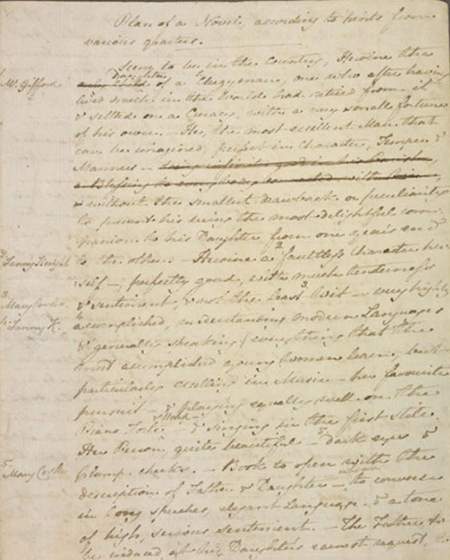 Plan of a Novel, according to hints from
various quarters.
Scene to be in the Country, Heroine the
Mr Gifford Daughter of a Clergyman, one who after having
lived much in the World had retired from it
& settled on a Curacy, with a very small fortune
of his own. — He, the most excellent Man that
can be imagined, perfect in Character, Temper &
Manners —
without the smallest drawback or peculiarity
to prevent his being the most delightful com-
panion to his Daughter from one year's end
Fanny Knight to the other. — Heroine a faultless Character her-
self — perfectly good, with much tenderness
Mary Cooke & sentiment, & not the least Wit — very highly
Fanny K. accomplished, understanding modern Languages
& generally speaking everything that the
most accomplished young Women learn, but
particularly excelling in Music — her favourite
pursuit — & playing equally well on the
Piano Forte & Harp — & singing in the first stile.
Her Person, quite beautiful — dark eyes &
Mary Cooke plump cheeks. — Book to open with the
description of Father & Daughter — who are to converse
in long speeches, elegant Language — & a tone
of high, serious sentiment. — The Father to
be induced, at his Daughter's earnest request,